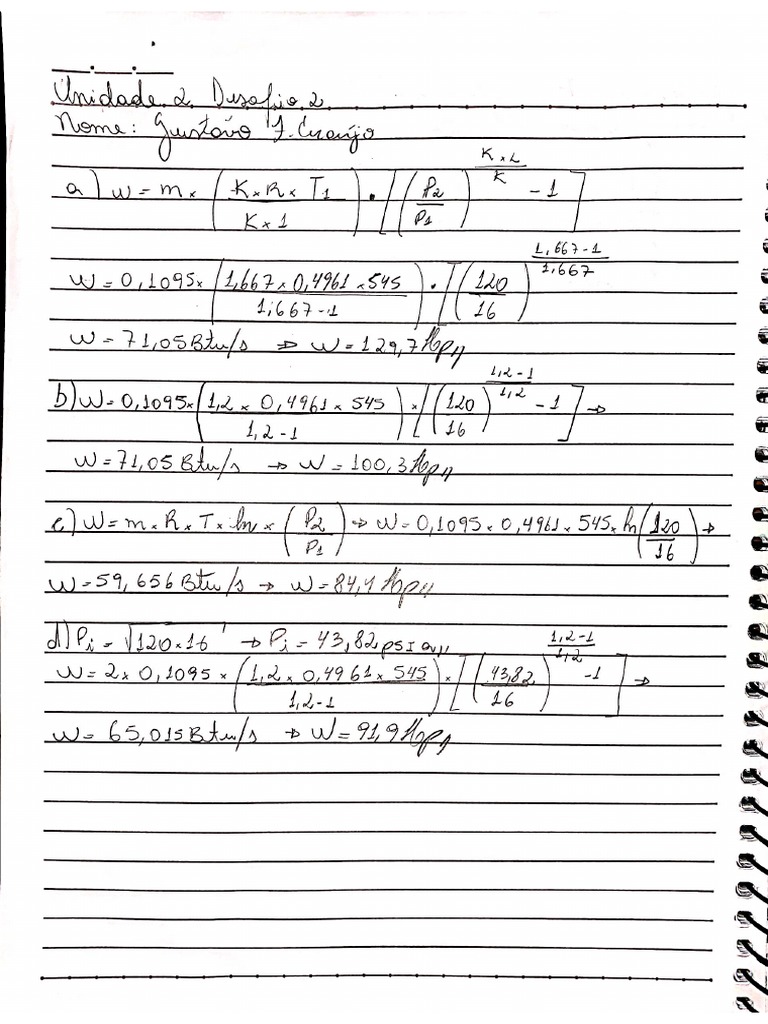 Unidade 2 Desafio 2
Nome: Gustavo F. Araújo
a) W = m × (K × R × T1 / K × 1) · [(P2 / P1)^(K × L / K) - 1]
W = 0,1095 × (1,667 × 0,4961 × 545 / 1,667 - 1) · [(120 / 16)^(1,667 - 1 / 1,667)
W = 71,05 Btu/s ⇒ W = 129,7 Hp//
b) W = 0,1095 × (1,2 × 0,4961 × 545 / 1,2 - 1) × [(120 / 16)^(1,2 - 1 / 1,2) - 1] →
W = 71,05 Btu/s → W = 100,3 Hp//
c) W = m × R × T × ln × (P2 / P1) → W = 0,1095 × 0,4961 × 545 × ln(120 / 16) →
W = 59,656 Btu/s → W = 84,4 Hp//
d) Pi = √120 × 16 → Pi = 43,82 psI a//
W = 2 × 0,1095 × (1,2 × 0,4961 × 545 / 1,2 - 1) × [(43,82 / 16)^(1,2 - 1 / 1,2) - 1] →
W = 65,015 Btu/s → W = 91,9 Hp//